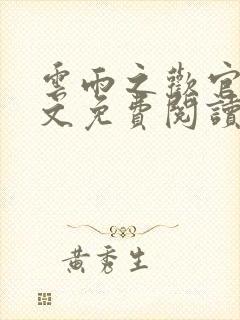 雲雨之歡官
文免費閱讀
黃秀生